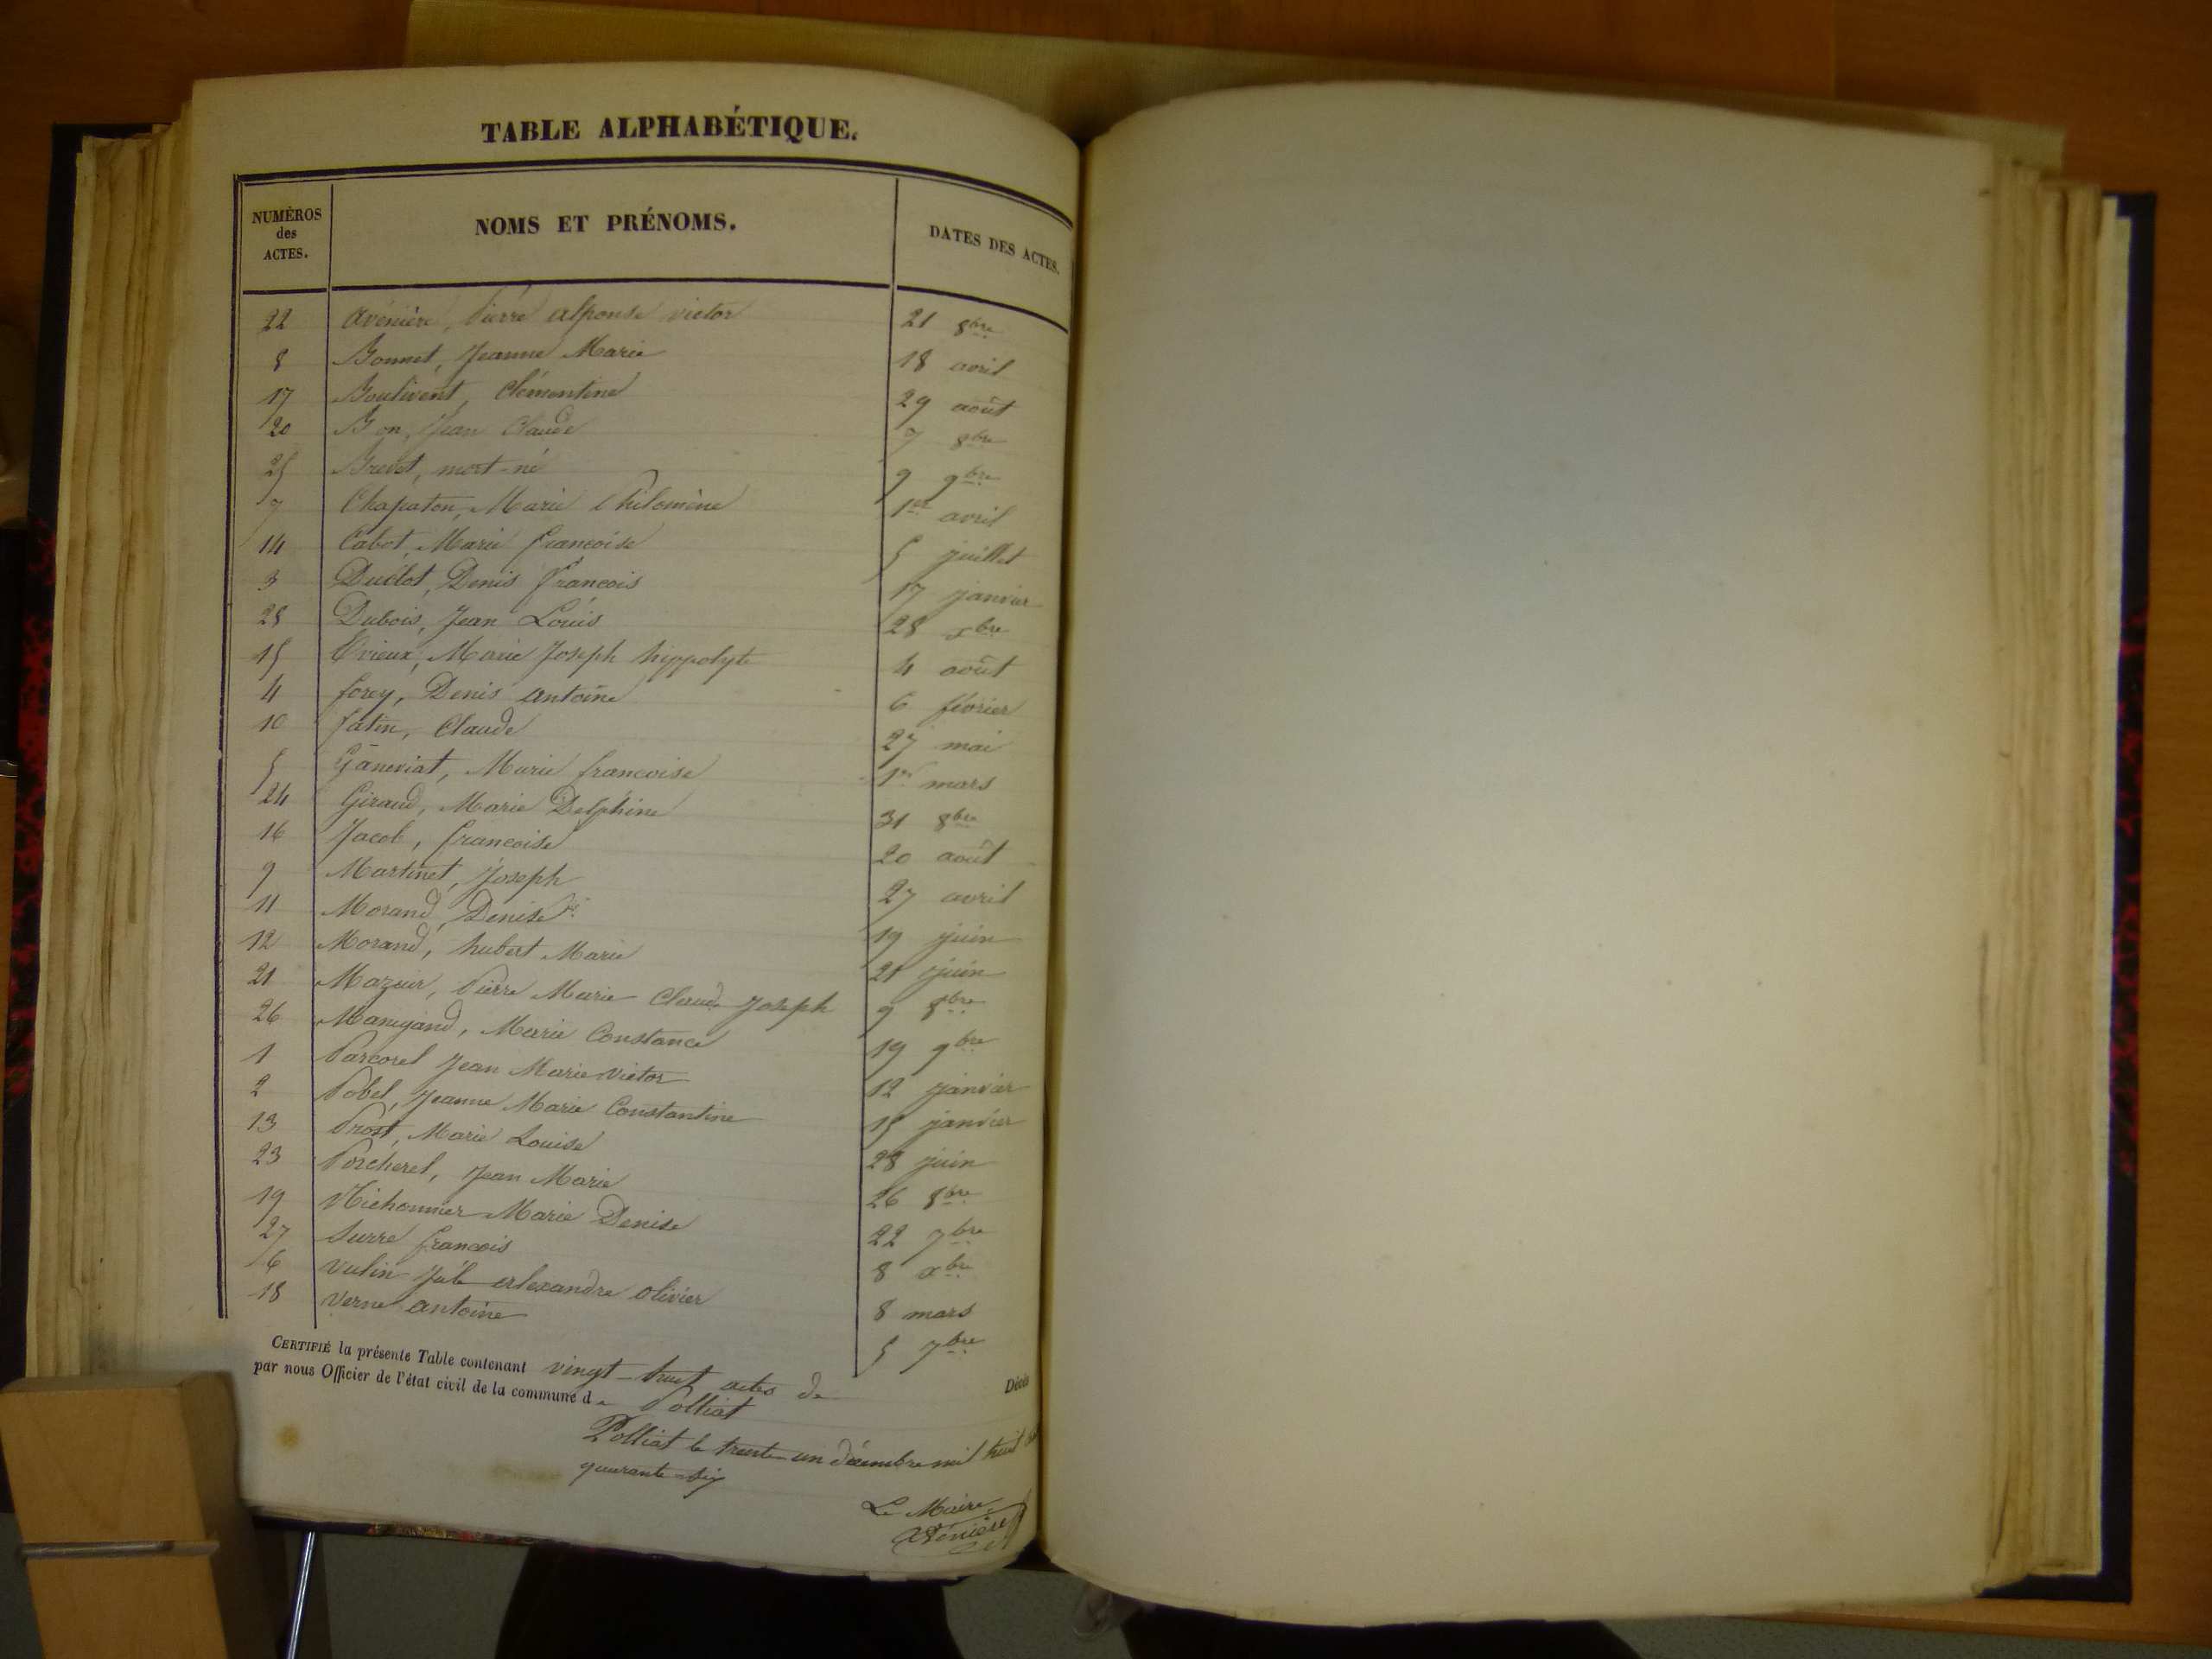 TABLE ALPHABÉTIQUE.
NUMÉROS des ACTES. NOMS ET PRÉNOMS. DATES DES ACTES.
22 Avénière, Pierre alphonse victor 21 8bre
8 Bonnet, Jeanne Marie 18 avril
17 Boulivent, Clémentine 29 août
20 Bon, Jean Claude 7 8bre
25 Brevet, mort-né 9 9bre
7 Chapaton, Marie Philomène 1er avril
14 Cabot, Marie françoise 5 juillet
3 Duclot, Denis françois 17 janvier
28 Dubois, Jean Louis 28 xbre
15 Erieux, Marie Joseph hippolyte 4 août
4 forey, Denis antoine 6 février
10 fatin, Claude 27 mai
5 Gäneviat, Marie françoise 1er mars
24 Giraud, Marie Delphine 31 8bre
16 Jacob, françoise 20 août
9 Martinet, Joseph 27 avril
11 Morand, Denise 19 juin
12 Morand, hubert Marie 21 juin
21 Mazuir, Pierre Marie Claude Joseph 9 8bre
26 Manigand, Marie Constance 19 9bre
1 Parcorel Jean Marie victor 12 janvier
2 Pobel, Jeanne Marie Constantine 15 janvier
13 Prost, Marie Louise 28 juin
23 Porcherel, Jean Marie 26 8bre
19 Michonnier Marie Denise 22 7bre
27 Surre françois 8 xbre
6 vulin alexandre olivier 8 mars
18 verne antoine 5 7bre
CERTIFIÉ la présente Table contenant vingt-huit actes de Décès
par nous Officier de l'état civil de la commune de Polliat
Polliat le trente-un décembre mil huit
quarante-six
Le Maire
Avénière